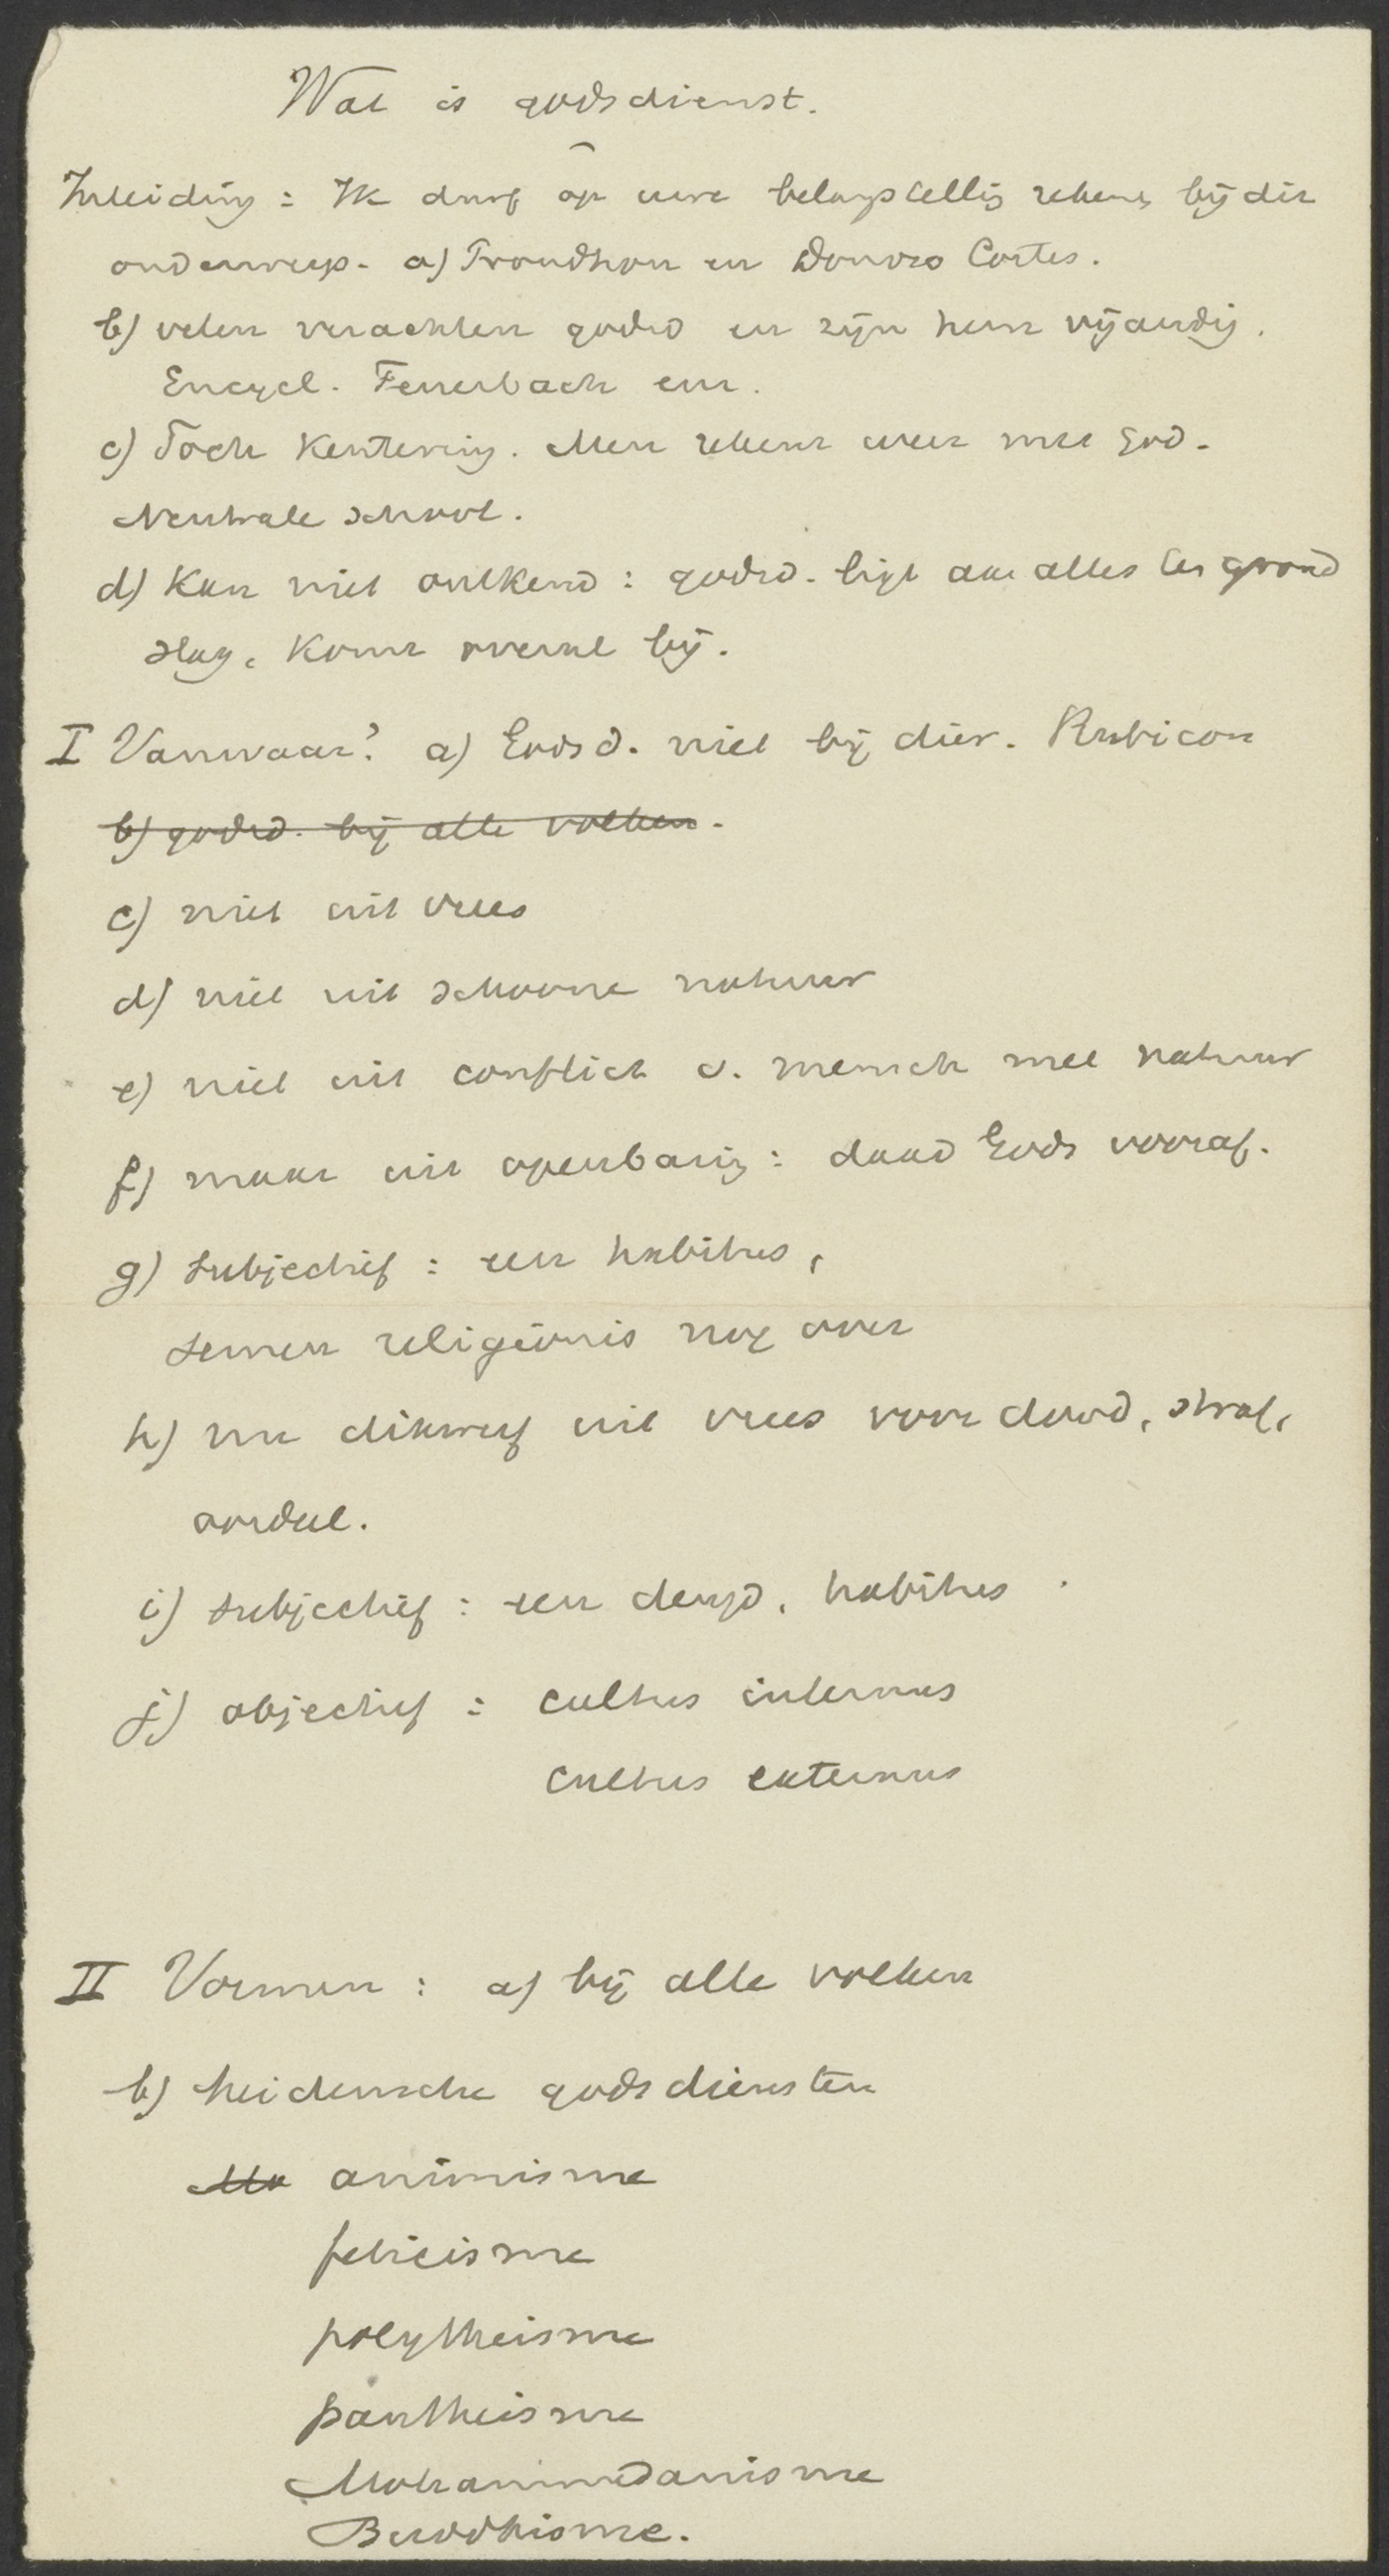 Wat is godsdienst.
Inleiding : Ik durf op uwe belangstellig rekenen bij dit
onderwerp. a) Proudhon en Donoso Cortes.
b) velen verachten godsd en zijn hem vijandig.
Encycl. Feuerbach enz.
c) Toch Kentering. Men rekent weer met God.
Neutrale school.
d) Kan niet ontkend : godsd. ligt aan alles ten grond
slag, Komt overal bij.
I Vanwaar? a) Godsd. niet bij dier. Rubicon
b) godsd. bij alle volken.
c) niet uit vrees
d) niet uit schoone natuur
e) niet uit conflict v. mensch met natuur
f) maar uit openbarig : daad Gods vooraf.
g) subjectief : een habitus,
semen religionis nog over
h) nu dikwerf uit vrees voor dood, straf,
oordeel.
i) subjectief : een deugd, habitus
j) objectief : cultus internus
cultus externus
II Vormen : a) bij alle volken
b) heidensche godsdiensten
Mo animisme
feticisme
polytheisme
pantheisme
Mohammedanisme
Buddhisme.